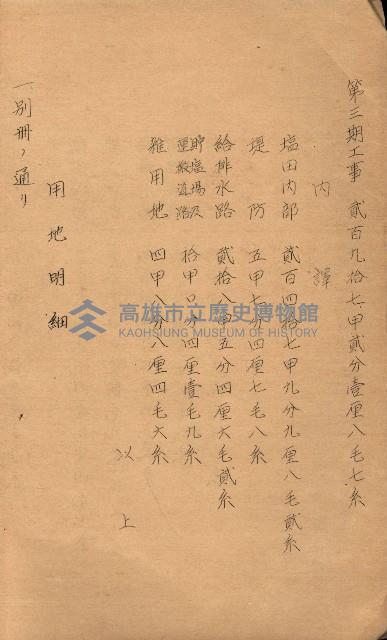 第三期工事 貳百九拾七甲貳分壹厘八毛七糸
内譯
塩田内部 貳百四拾七甲九分九厘八毛貳糸
堤防 五甲七分四厘七毛八糸
給排水路 貳拾八甲五分四厘六毛貳糸
貯塩場及運搬道路 拾甲〇分四厘壹毛九糸
雜用地 四甲八分八厘四毛六糸
以上
用地明細
一、別冊ノ通リ
高雄市立歷史博物館
KAOHSIUNG MUSEUM OF HISTORY